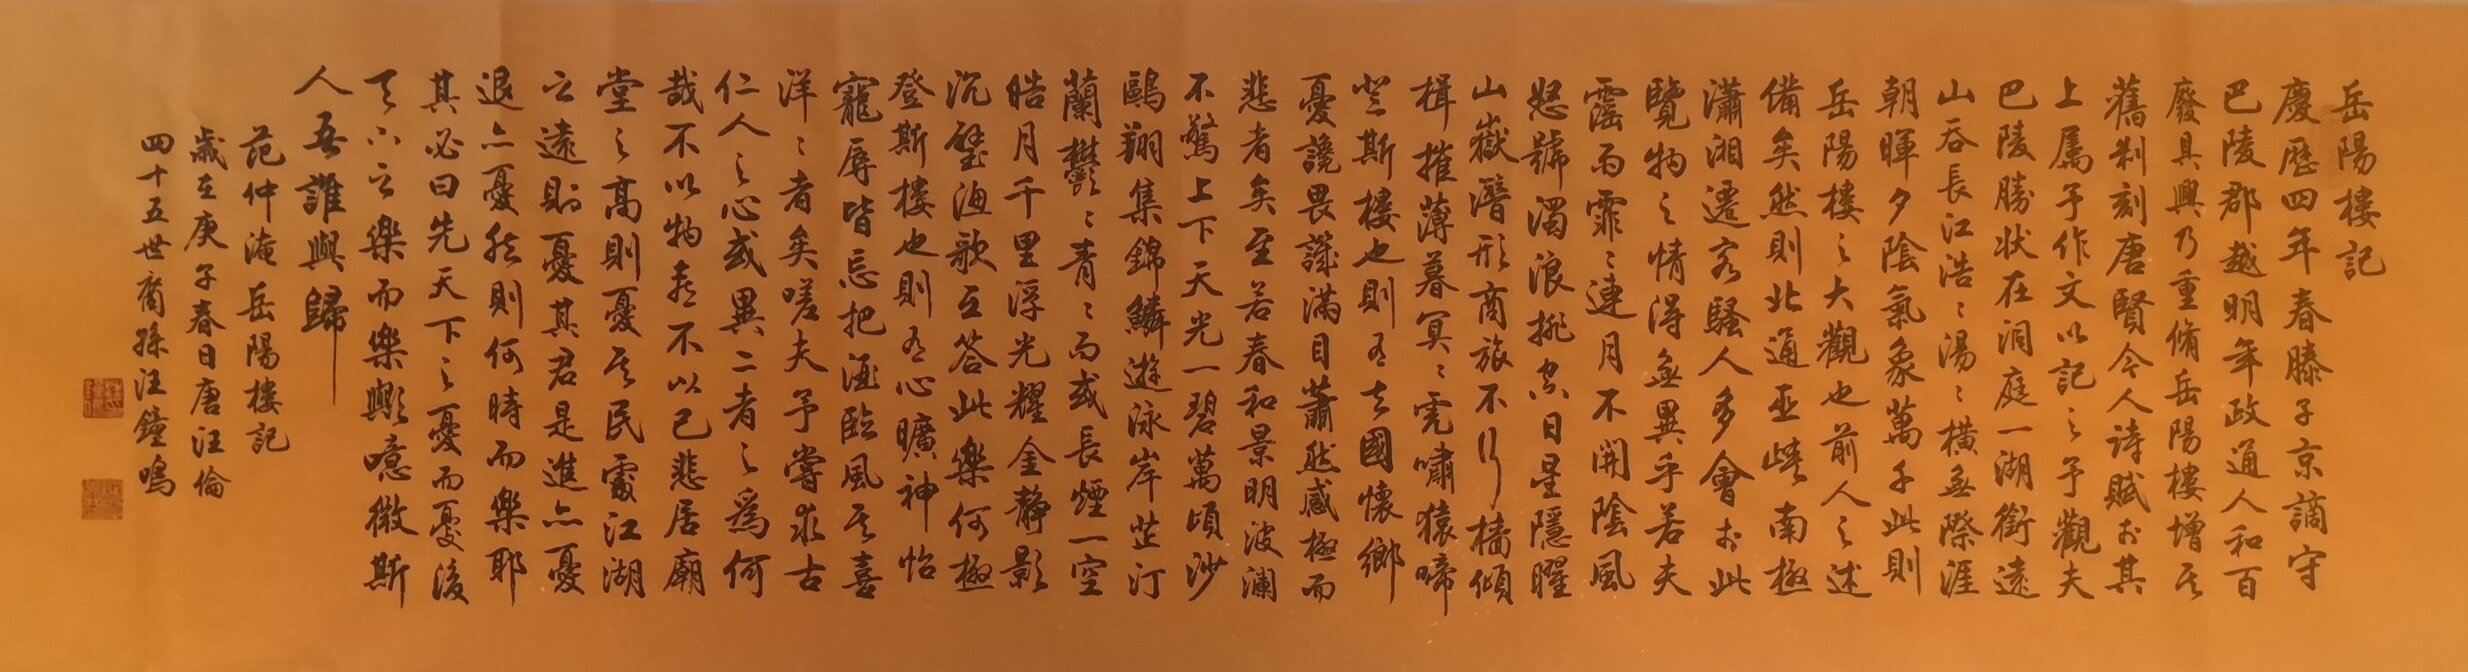 岳陽樓記
慶歷四年春滕子京謫守
巴陵郡越明年政通人和百
廢具興乃重脩岳陽樓增其
舊制刻唐賢今人詩賦於其
上屬予作文以記之予觀夫
巴陵勝狀在洞庭一湖銜遠
山吞長江浩〻湯〻橫無際涯
朝暉夕陰氣象萬千此則
岳陽樓之大觀也前人之述
備矣然則北通巫峽南極
瀟湘遷客騷人多會於此
覽物之情得無異乎若夫
霪雨霏〻連月不開陰風
怒號濁浪排空日星隱曜
山嶽潛形商旅不行檣傾
楫摧薄暮冥〻虎嘯猿啼
登斯樓也則有去國懷鄉
憂讒畏譏滿目蕭然感極而
悲者矣至若春和景明波瀾
不驚上下天光一碧萬頃沙
鷗翔集錦鱗遊泳岸芷汀
蘭鬱〻青〻而或長煙一空
皓月千里浮光耀金靜影
沉璧漁歌互答此樂何極
登斯樓也則有心曠神怡
寵辱皆忘把酒臨風其喜
洋〻者矣嗟夫予嘗求古
仁人之心或異二者之為何
哉不以物喜不以己悲居廟
堂之高則憂其民處江湖
之遠則憂其君是進亦憂
退亦憂然則何時而樂耶
其必曰先天下之憂而憂後
天下之樂而樂歟噫微斯
人吾誰與歸
范仲淹岳陽樓記
歲在庚子春日唐汪倫
四十五世裔孫汪鐘鳴